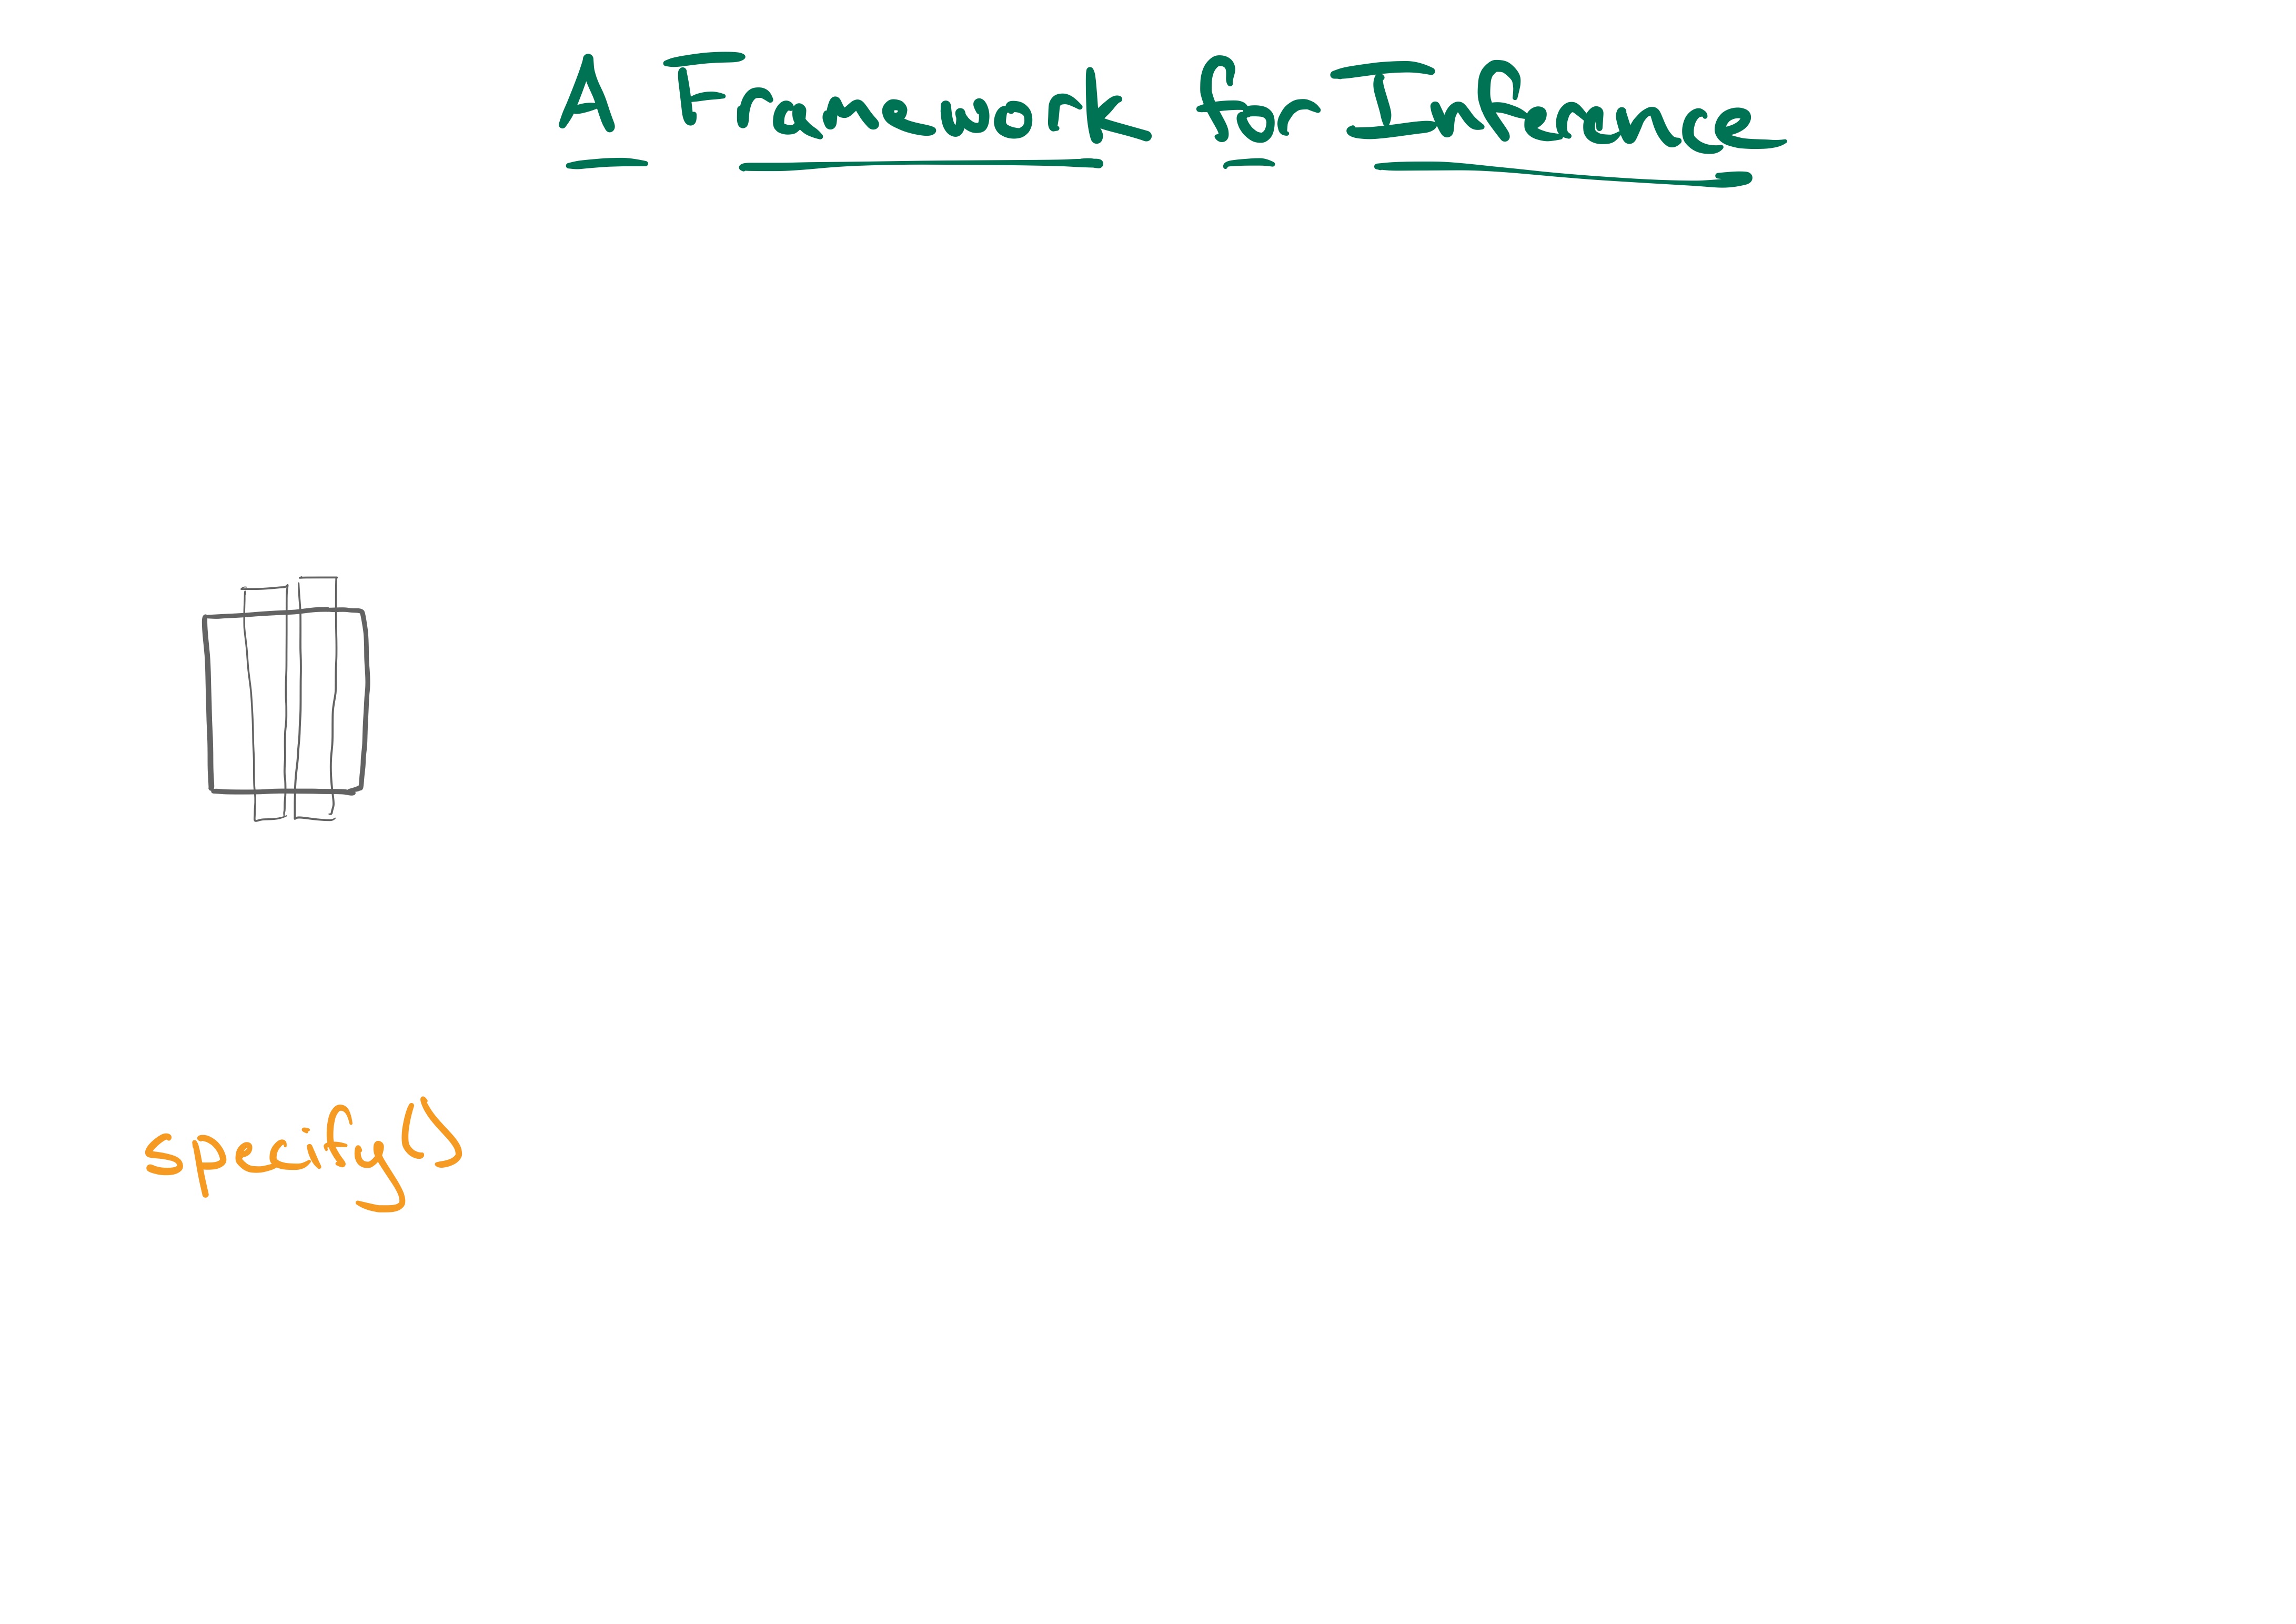 A Framework for Inference
specify()